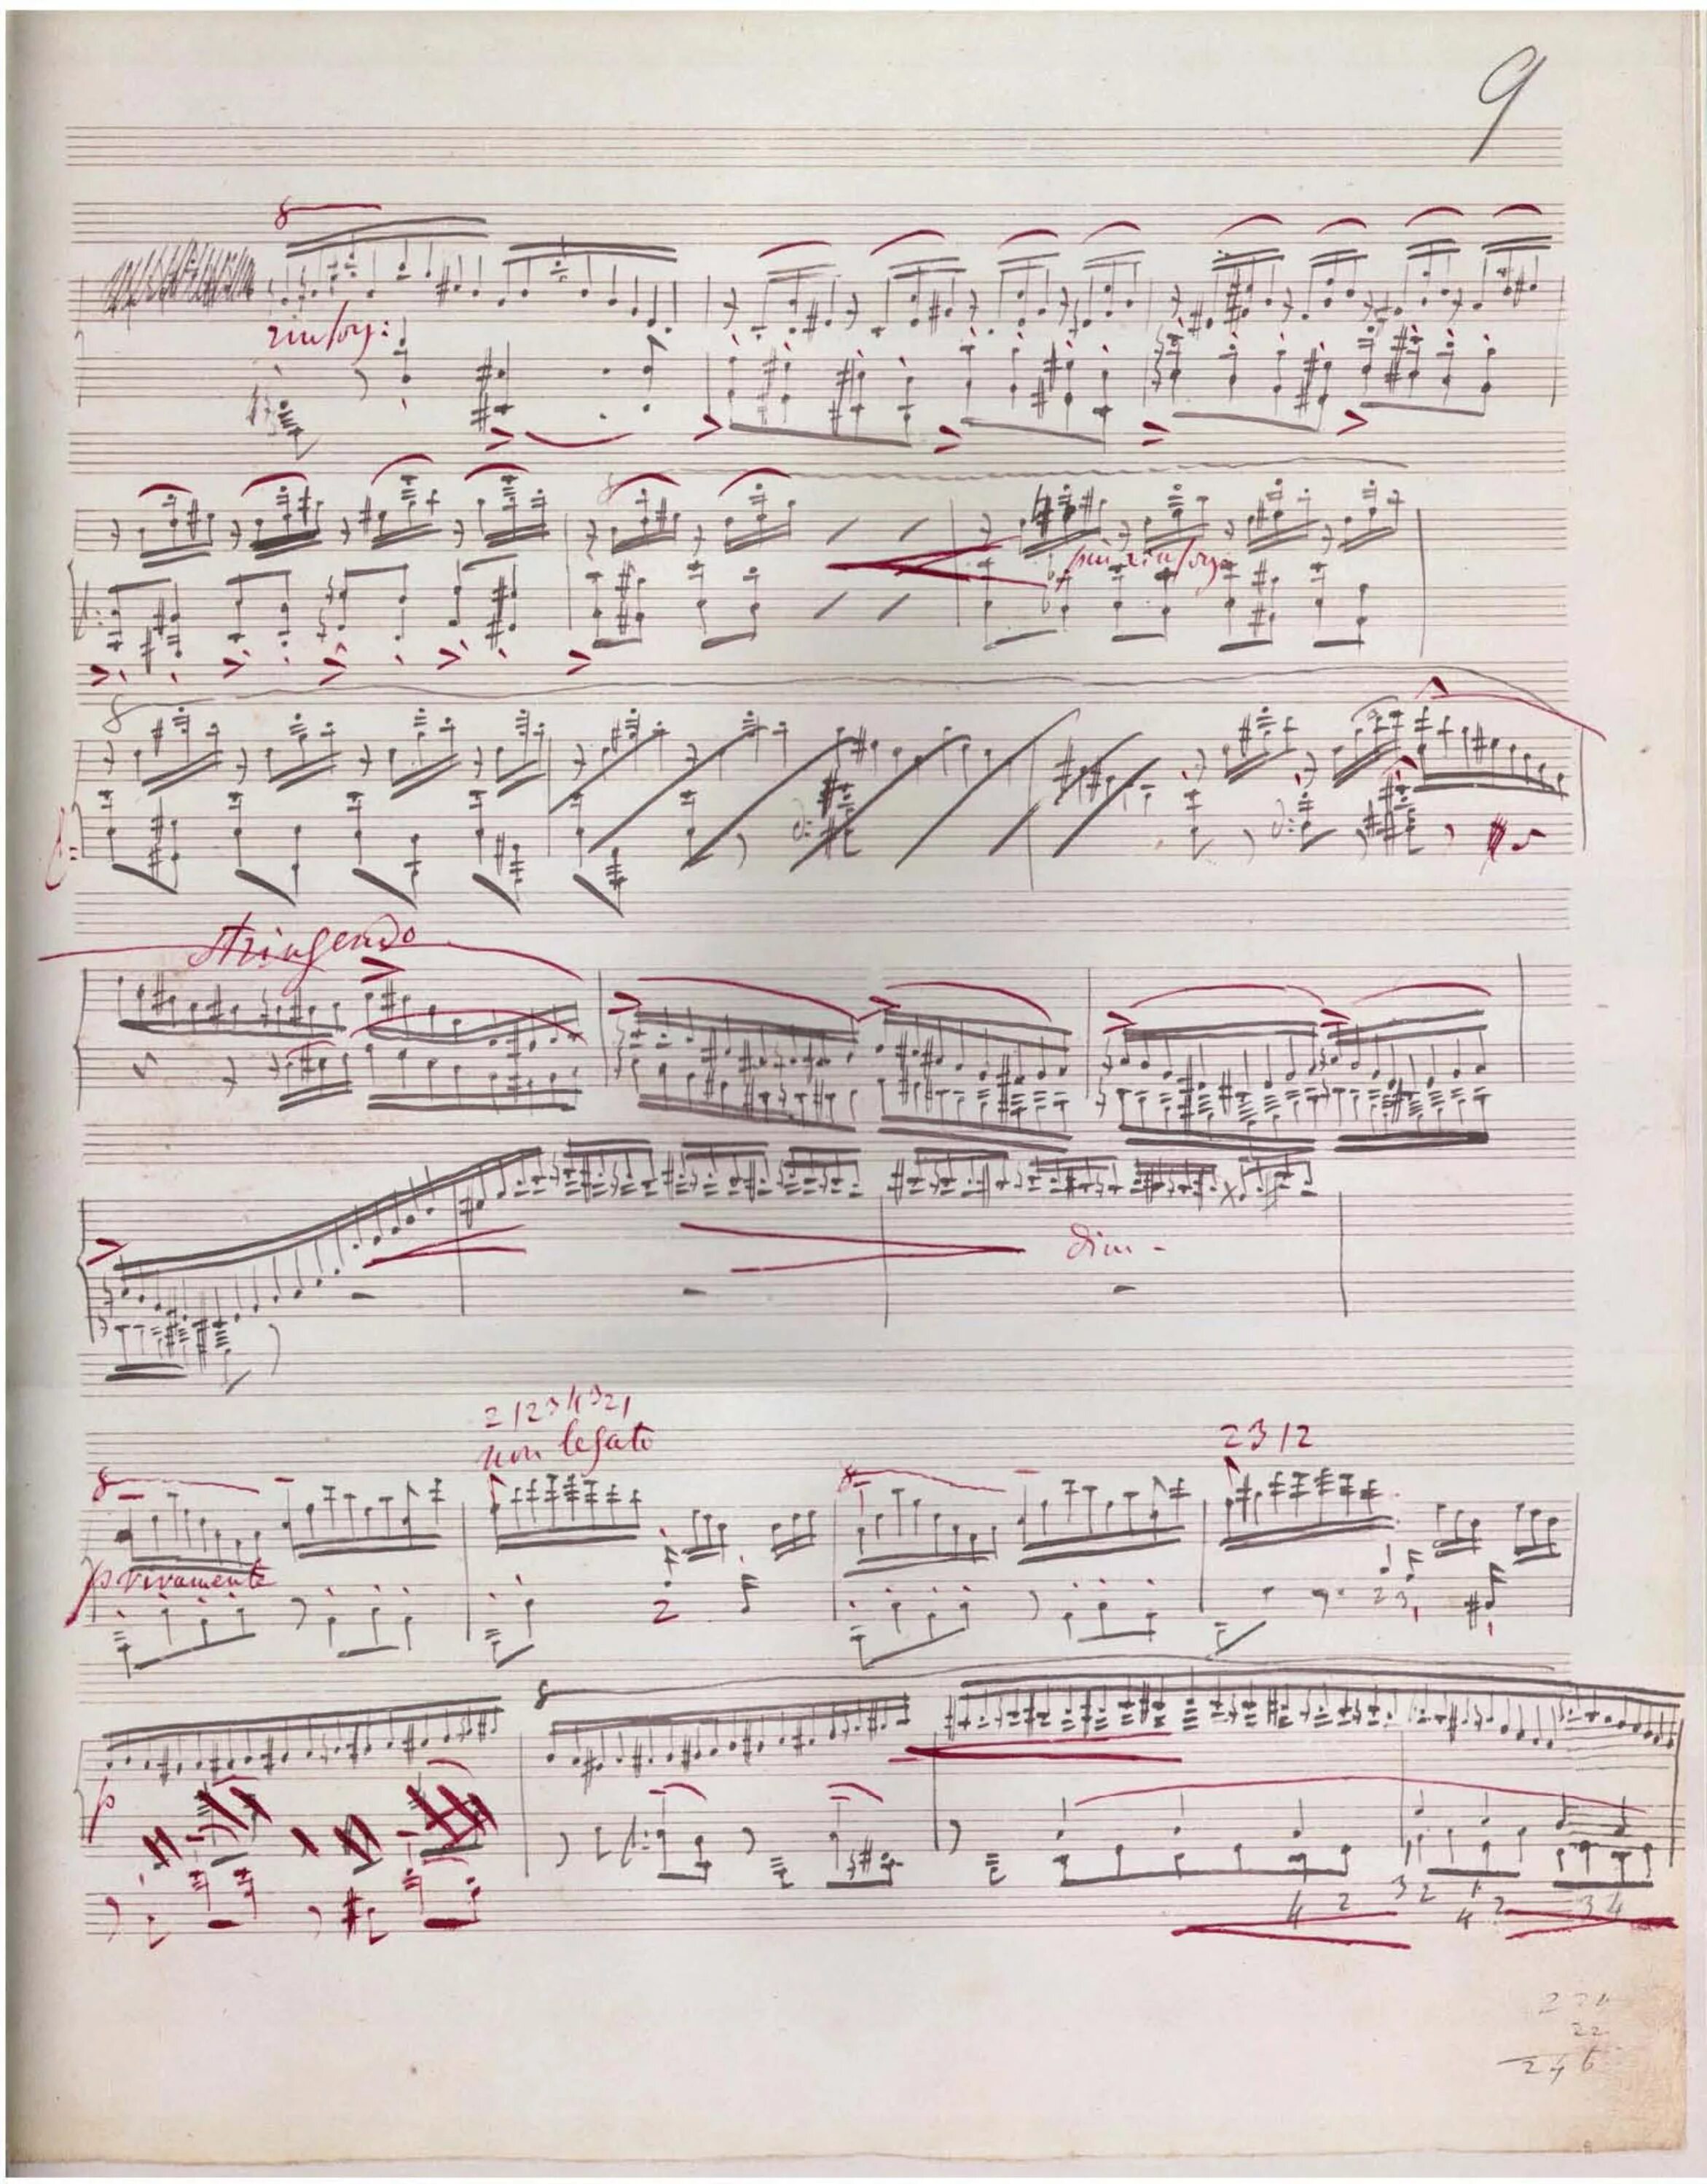 9
8
rinforz:
8
più rinforz
8
stringendo
dim -
2 1 2 3 4 3 2 1
non legato
2 3 1 2
8
8
p vivamente
2
2 3 1
8
p
4 2 3 2 1 4 2 3 4
22
246